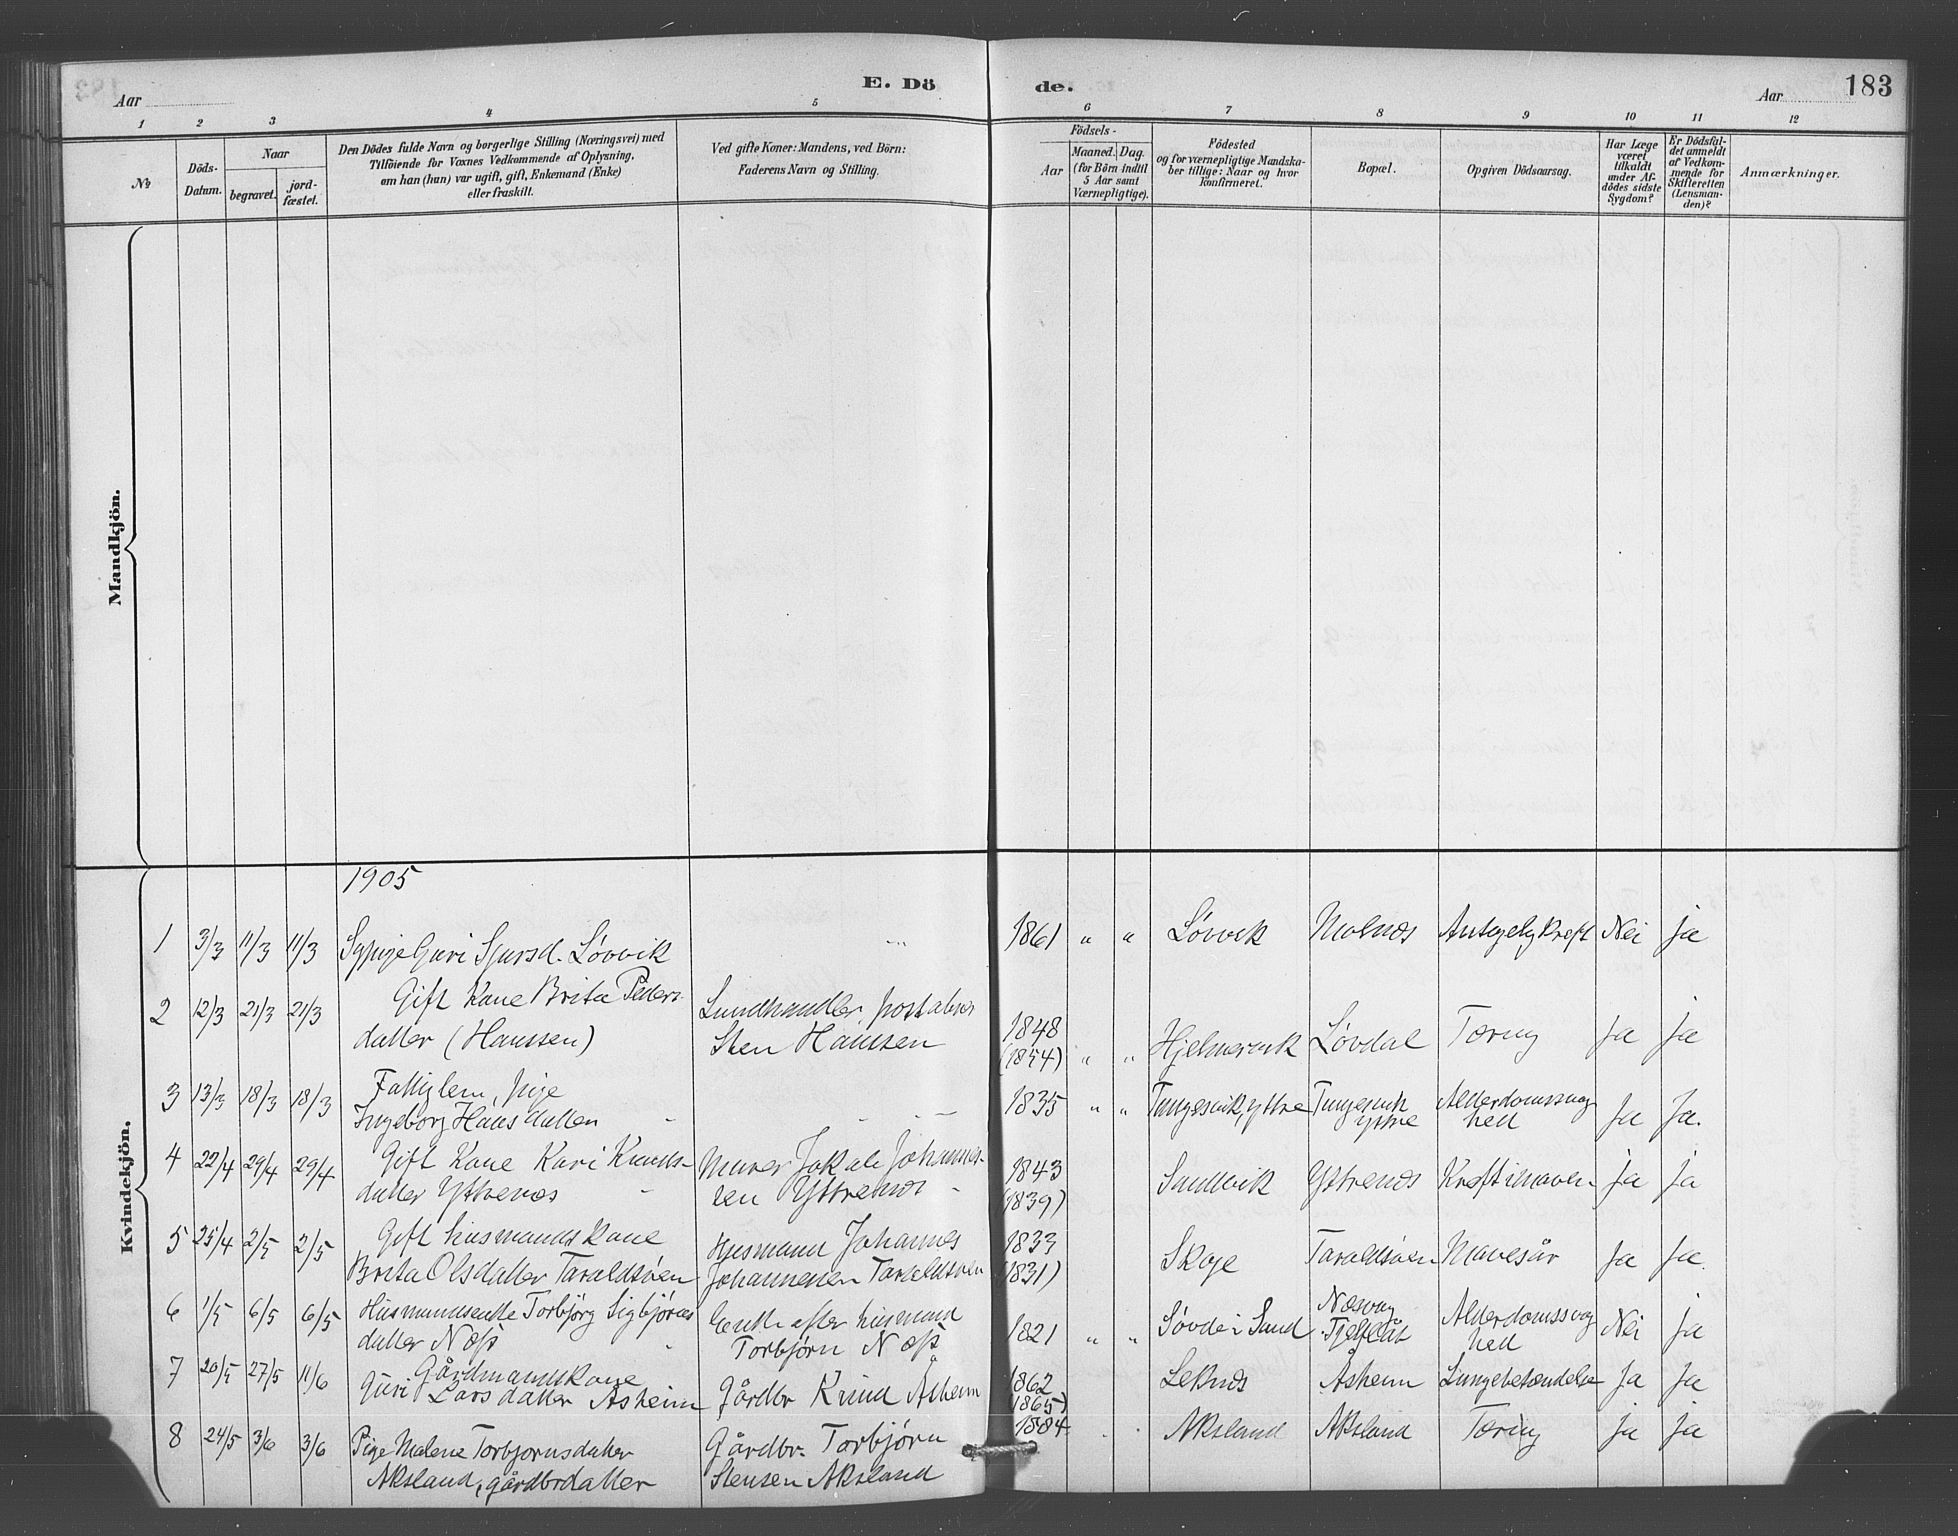 E. Dö de.
183
Aar
Aar
1 2 3 4 5 6 7 8 9 10 11 12
№
Döds-Datum.
Naar
begravet.
jord-fæstet.
Den Dödes fulde Navn og borgerlige Stilling (Næringsvei) med
Tilföiende for Voxnes Vedkommende af Oplysning,
om han (hun) var ugift, gift, Enkemand (Enke)
eller fraskilt.
Ved gifte Koner: Mandens, ved Börn:
Faderens Navn og Stilling.
Födsels-
Aar
Maaned. Dag.
(for Börn indtil
5 Aar samt
Værnepligtige).
Födested
og for værnepligtige Mandska-
ber tillige: Naar og hvor
konfirmeret.
Bopæl.
Opgiven Dödsaarsag.
Har Læge
været
tilkaldt
under Af-
dödes sidste
Sygdom?
Er Dödsfal-
det anmeldt
af Vedkom-
mende for
Skifteretten
(Lensman-
den)?
Anmærkninger.
Mandkjön.
Kvindekjön.
1905
1 3/3 11/3 11/3 Sypige Guri Sjursd. Løvvik " 1861 " " Løvvik Molnes Nei ja
2 12/3 21/3 21/3 Gift Kone Brita Peders-
datter (Hanssen) Landhandler, postaabner
Sten Hanssen 1848
(1854) " " Hjelmervik Løvdal Tæring Ja ja
3 13/3 18/3 18/3 Fattiglem, pige
Ingeborg Hansdatter - 1835 " " Tungesvik, yttre Tungesvik
yttre Alderdomssvag
hed Ja Ja.
4 22/4 29/4 29/4 Gift Kone Kari Knuds-
datter Yttrenes - Murer Jakob Johannes-
sen Yttrenes - 1843
(1839) Sandvik Yttrenes Kræft i maven ja ja
5 25/4 2/5 2/5 Gift husmandskone
Brita Olsdatter Taraldsøen Husmand Johannes
Johannesen Taraldsøen 1833
(1831) Skoge Taraldsøen Mavesår Ja Ja.
6 1/5 6/5 6/5 Husmandsenke Torbjørg Sigbjørns
datter Næss Enke efter husmand
Torbjørn Næss 1821 " " Søvde i Sand Næsvåg
Alderdomssvag
hed Nei ja
7 20/5 27/5 11/6 Gårdmandskone
Guri Larsdatter Åsheim Gårdbr Knud Åsheim 1862
1865) Leknes Åsheim Lungebetændelse Ja Ja
8 24/5 3/6 3/6 Pige Malene Torbjørnsdatter
Aksland, gårdbrdatter Gårdbr. Torbjørn
Stensen Aksland 1884 Aksland Aksland Tæring ja ja